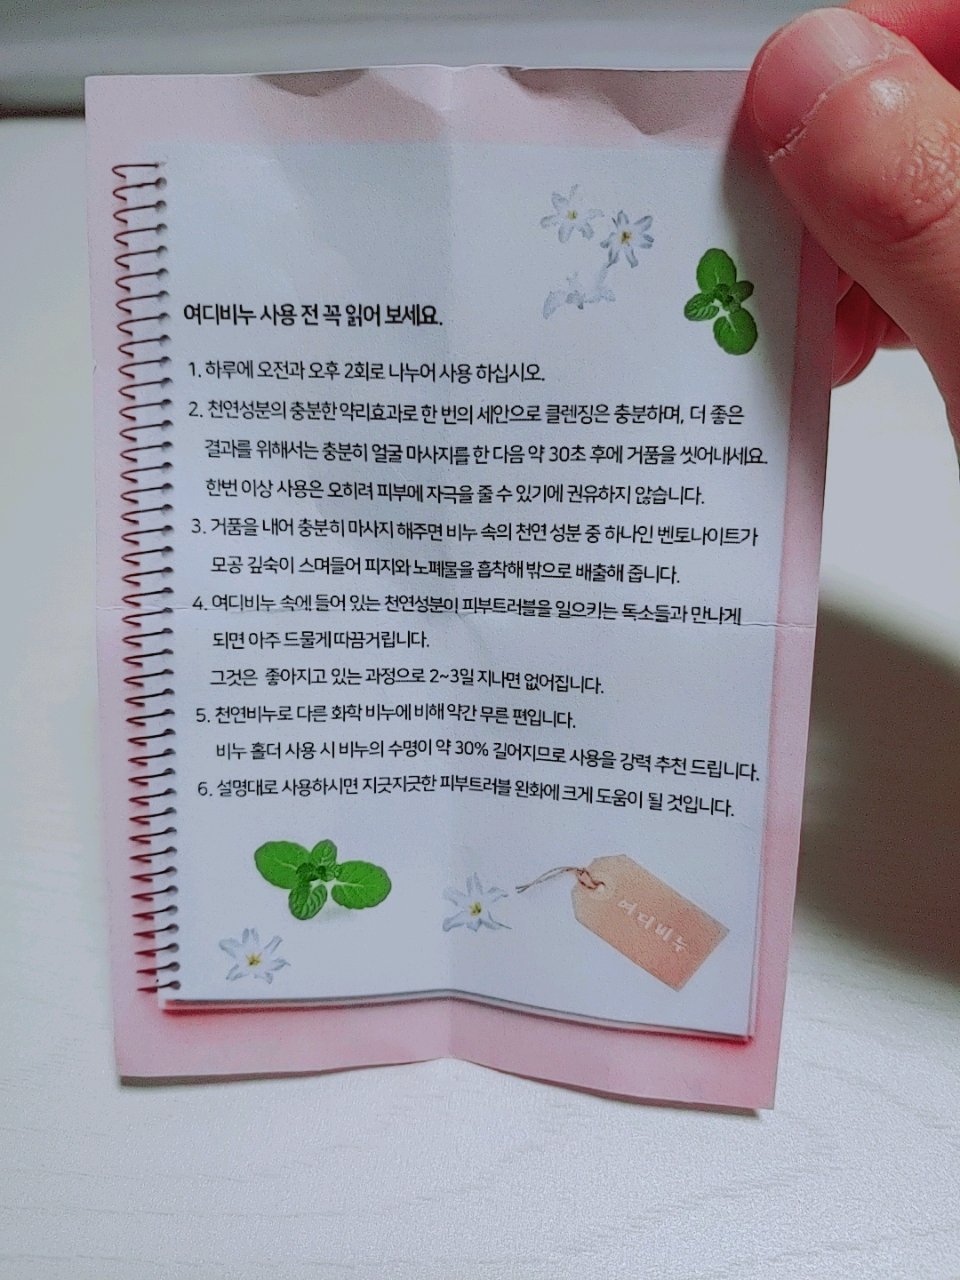 여디비누 사용 전 꼭 읽어 보세요.
1. 하루에 오전과 오후 2회로 나누어 사용 하십시오.
2. 천연성분의 충분한 약리효과로 한 번의 세안으로 클렌징은 충분하며, 더 좋은
결과를 위해서는 충분히 얼굴 마사지를 한 다음 약 30초 후에 거품을 씻어내세요.
한번 이상 사용은 오히려 피부에 자극을 줄 수 있기에 권유하지 않습니다.
3. 거품을 내어 충분히 마사지 해주면 비누 속의 천연 성분 중 하나인 벤토나이트가
모공 깊숙이 스며들어 피지와 노폐물을 흡착해 밖으로 배출해 줍니다.
4. 여디비누 속에 들어 있는 천연성분이 피부트러블을 일으키는 독소들과 만나게
되면 아주 드물게 따끔거립니다.
그것은 좋아지고 있는 과정으로 2~3일 지나면 없어집니다.
5. 천연비누로 다른 화학 비누에 비해 약간 무른 편입니다.
비누 홀더 사용 시 비누의 수명이 약 30% 길어지므로 사용을 강력 추천 드립니다.
6. 설명대로 사용하시면 지긋지긋한 피부트러블 완화에 크게 도움이 될 것입니다.
여디비누